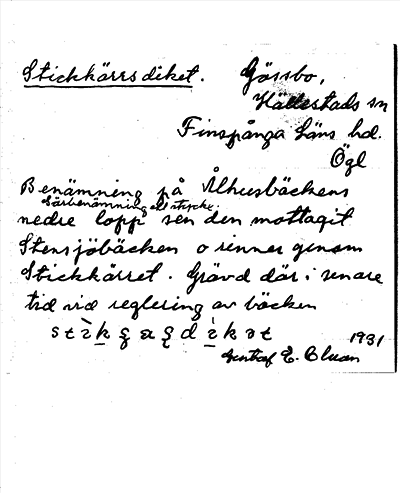 Stickkärrsdiket. Gössbo,
Hällestads sn
Finspånga Läns hd.
Ögl
Benämning på Ålhusbäckens
Särbenämning ett stycke.
nedre lopp sen den mottagit
Stensjöbäcken o rinner genom
Stickkärret. Grävd där i senare
tid vid reglering av bäcken
1931
E.